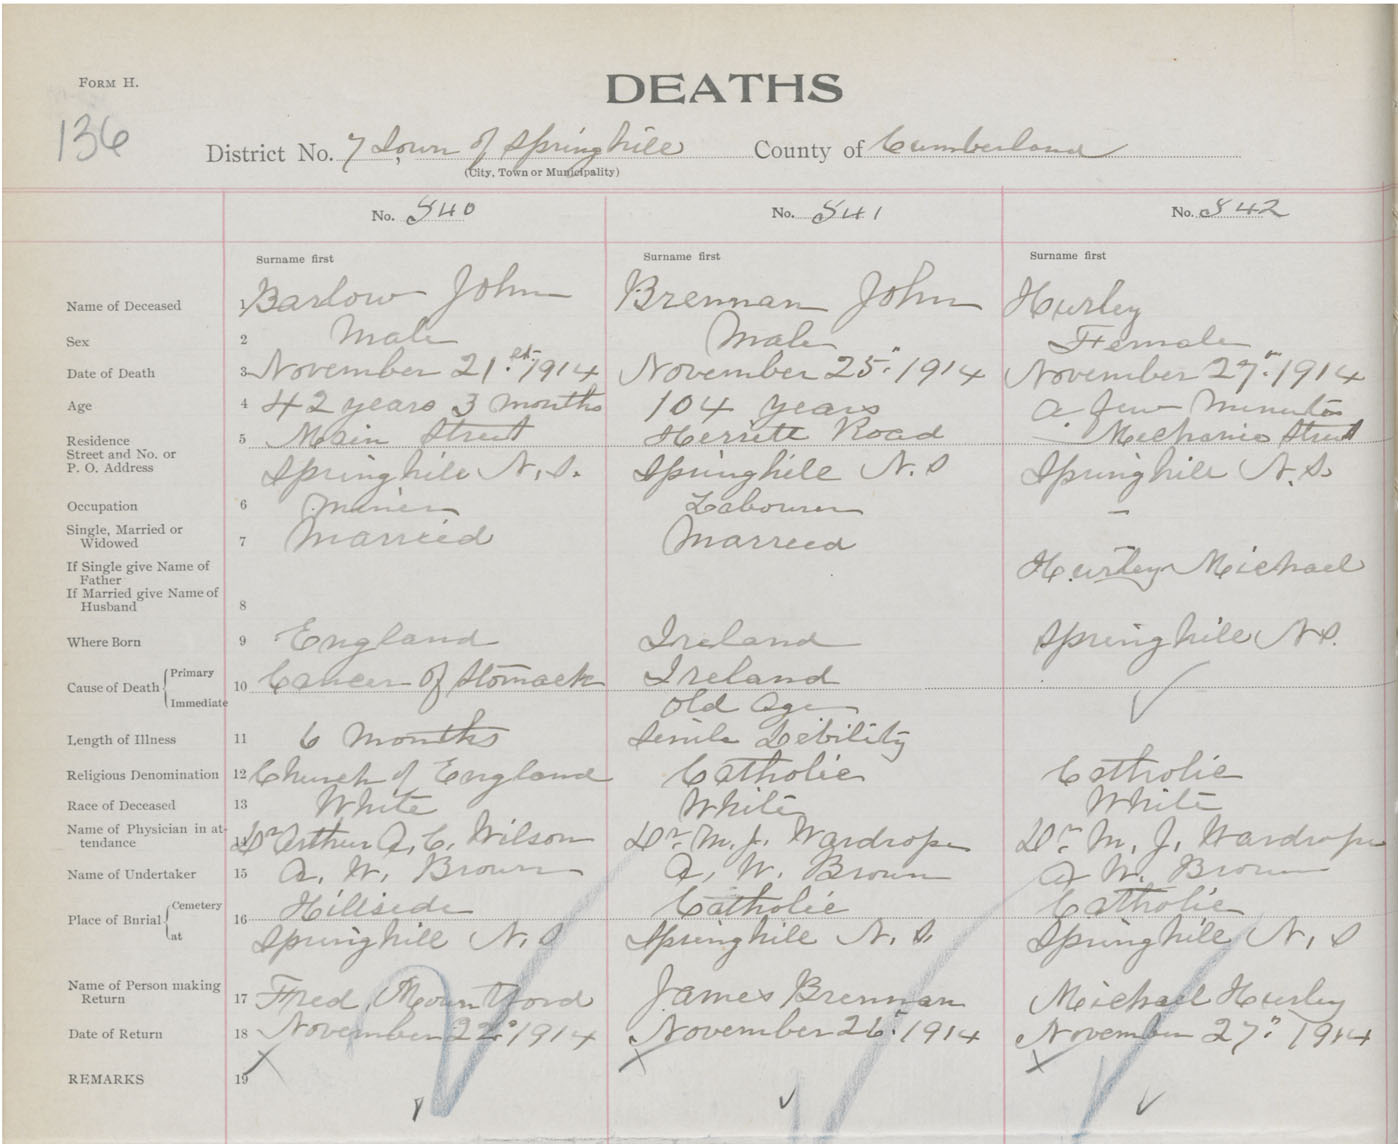 FORM H.
DEATHS
136
District No. 7 Town of Springhill County of Cumberland
(City, Town or Municipality)
No. 840 No. 841 No. 842
Surname first Surname first Surname first
Name of Deceased 1 Barlow John Brennan John Hurley
Sex 2 Male Male Female
Date of Death 3 November 21st 1914 November 25" 1914 November 27" 1914
Age 4 42 years 3 months 104 years a few minutes
Residence 5 Main Street Herrett Road Mechanic Street
Street and No. or
P. O. Address Springhill N.S. Springhill N.S Springhill N.S.
Occupation 6 Miner Labourer —
Single, Married or
Widowed 7 Married Married
If Single give Name of
Father Hurley Michael
If Married give Name of
Husband 8
Where Born 9 England Ireland Springhill N.S.
Cause of Death Primary 10 Cancer of Stomack Ireland
Immediate Old Age
Length of Illness 11 6 Months Senile Debility
Religious Denomination 12 Church of England Catholic Catholic
Race of Deceased 13 White White White
Name of Physician in at-
tendance 14 Dr Arthur A. C. Wilson Dr M. J. Wardrope Dr M. J. Wardrope
Name of Undertaker 15 A. W. Brown A. W. Brown A W. Brown
Place of Burial Cemetery 16 Hillside Catholic Catholic
at Springhill N.S Springhill N.S. Springhill N.S
Name of Person making
Return 17 Fred Mountford James Brennan Michael Hurley
Date of Return 18 November 22" 1914 November 26" 1914 November 27" 1914
REMARKS 19